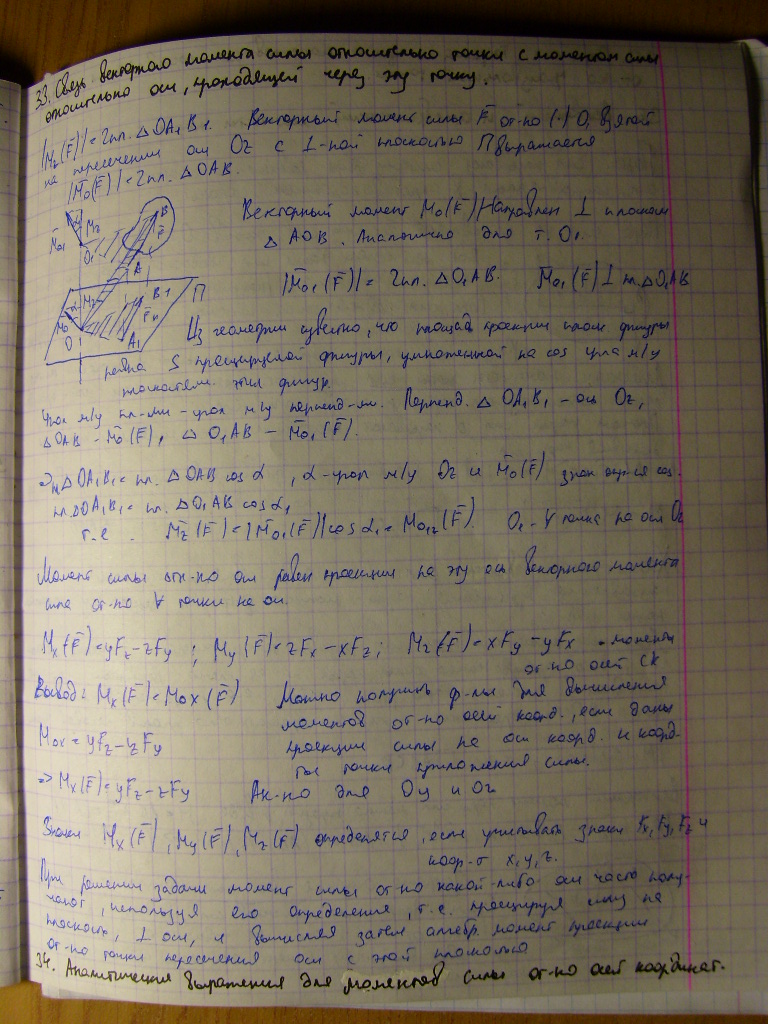 33. Связь векторного момента силы относительно точки с моментом силы
относительно оси, проходящей через эту точку.
|Mz(F̄)| = 2пл. △OA₁B₁. Векторный момент силы F̄ от-но (·) O, взятой
на пересечении оси Oz с ⊥-ной плоскостью П выражается
|M̄o(F̄)| = 2пл. △OAB.
Векторный момент M̄o(F̄) направлен ⊥ плоскости
△AOB. Аналогично для т. O₁.
|M̄o₁(F̄)| = 2пл. △O₁AB. M̄o₁(F̄) ⊥ пл. △O₁AB
M̄o₁ Mz B F̄ O₁ A
П Mz B₁ F̄п M̄o O A₁
Из геометрии известно, что площадь проекции плоск фигуры
равна S проецируемой фигуры, умноженной на cos угла м/у
плоскостями этих фигур.
Угол м/у пл-ми - угол м/у перпенд-ми. Перпенд. △OA₁B₁ - ось Oz,
△OAB - M̄o(F̄), △O₁AB - M̄o₁(F̄).
⇒ пл △OA₁B₁ = пл. △OAB cos α, α - угол м/у Oz и M̄o(F̄) знак cos.
пл. △OA₁B₁ = пл. △O₁AB cos α₁
т.е. M̄z(F̄) = |M̄o₁(F̄)| cos α₁ = Mo₁z(F̄). O₁ - ∀ точка на оси Oz
Момент силы отн-но оси равен проекции на эту ось векторного момента
силы от-но ∀ точки на оси.
Mx(F̄) = yFz - zFy; My(F̄) = zFx - xFz; Mz(F̄) = xFy - yFx - моменты
от-но осей СК
Вывод: Mx(F̄) = Mox(F̄) Можно получить ф-лы для вычисления
моментов от-но осей коорд., если даны
Mox = yFz - zFy проекции силы на оси коорд. и коорд-
ты точки приложения силы.
⇒ Mx(F̄) = yFz - zFy Ан-но для Oy и Oz
Знаки Mx(F̄), My(F̄), Mz(F̄) определятся, если учитывать знаки Fx, Fy, Fz и
коор-т x, y, z.
При решении задачи момент силы от-но какой-либо оси часто полу-
чают, используя его определение, т.е. проецируя силу на
плоскость, ⊥ оси, и вычисляя затем алгебр. момент проекции
от-но точки пересечения оси с этой плоскостью
34. Аналитические выражения для моментов силы от-но осей координат.